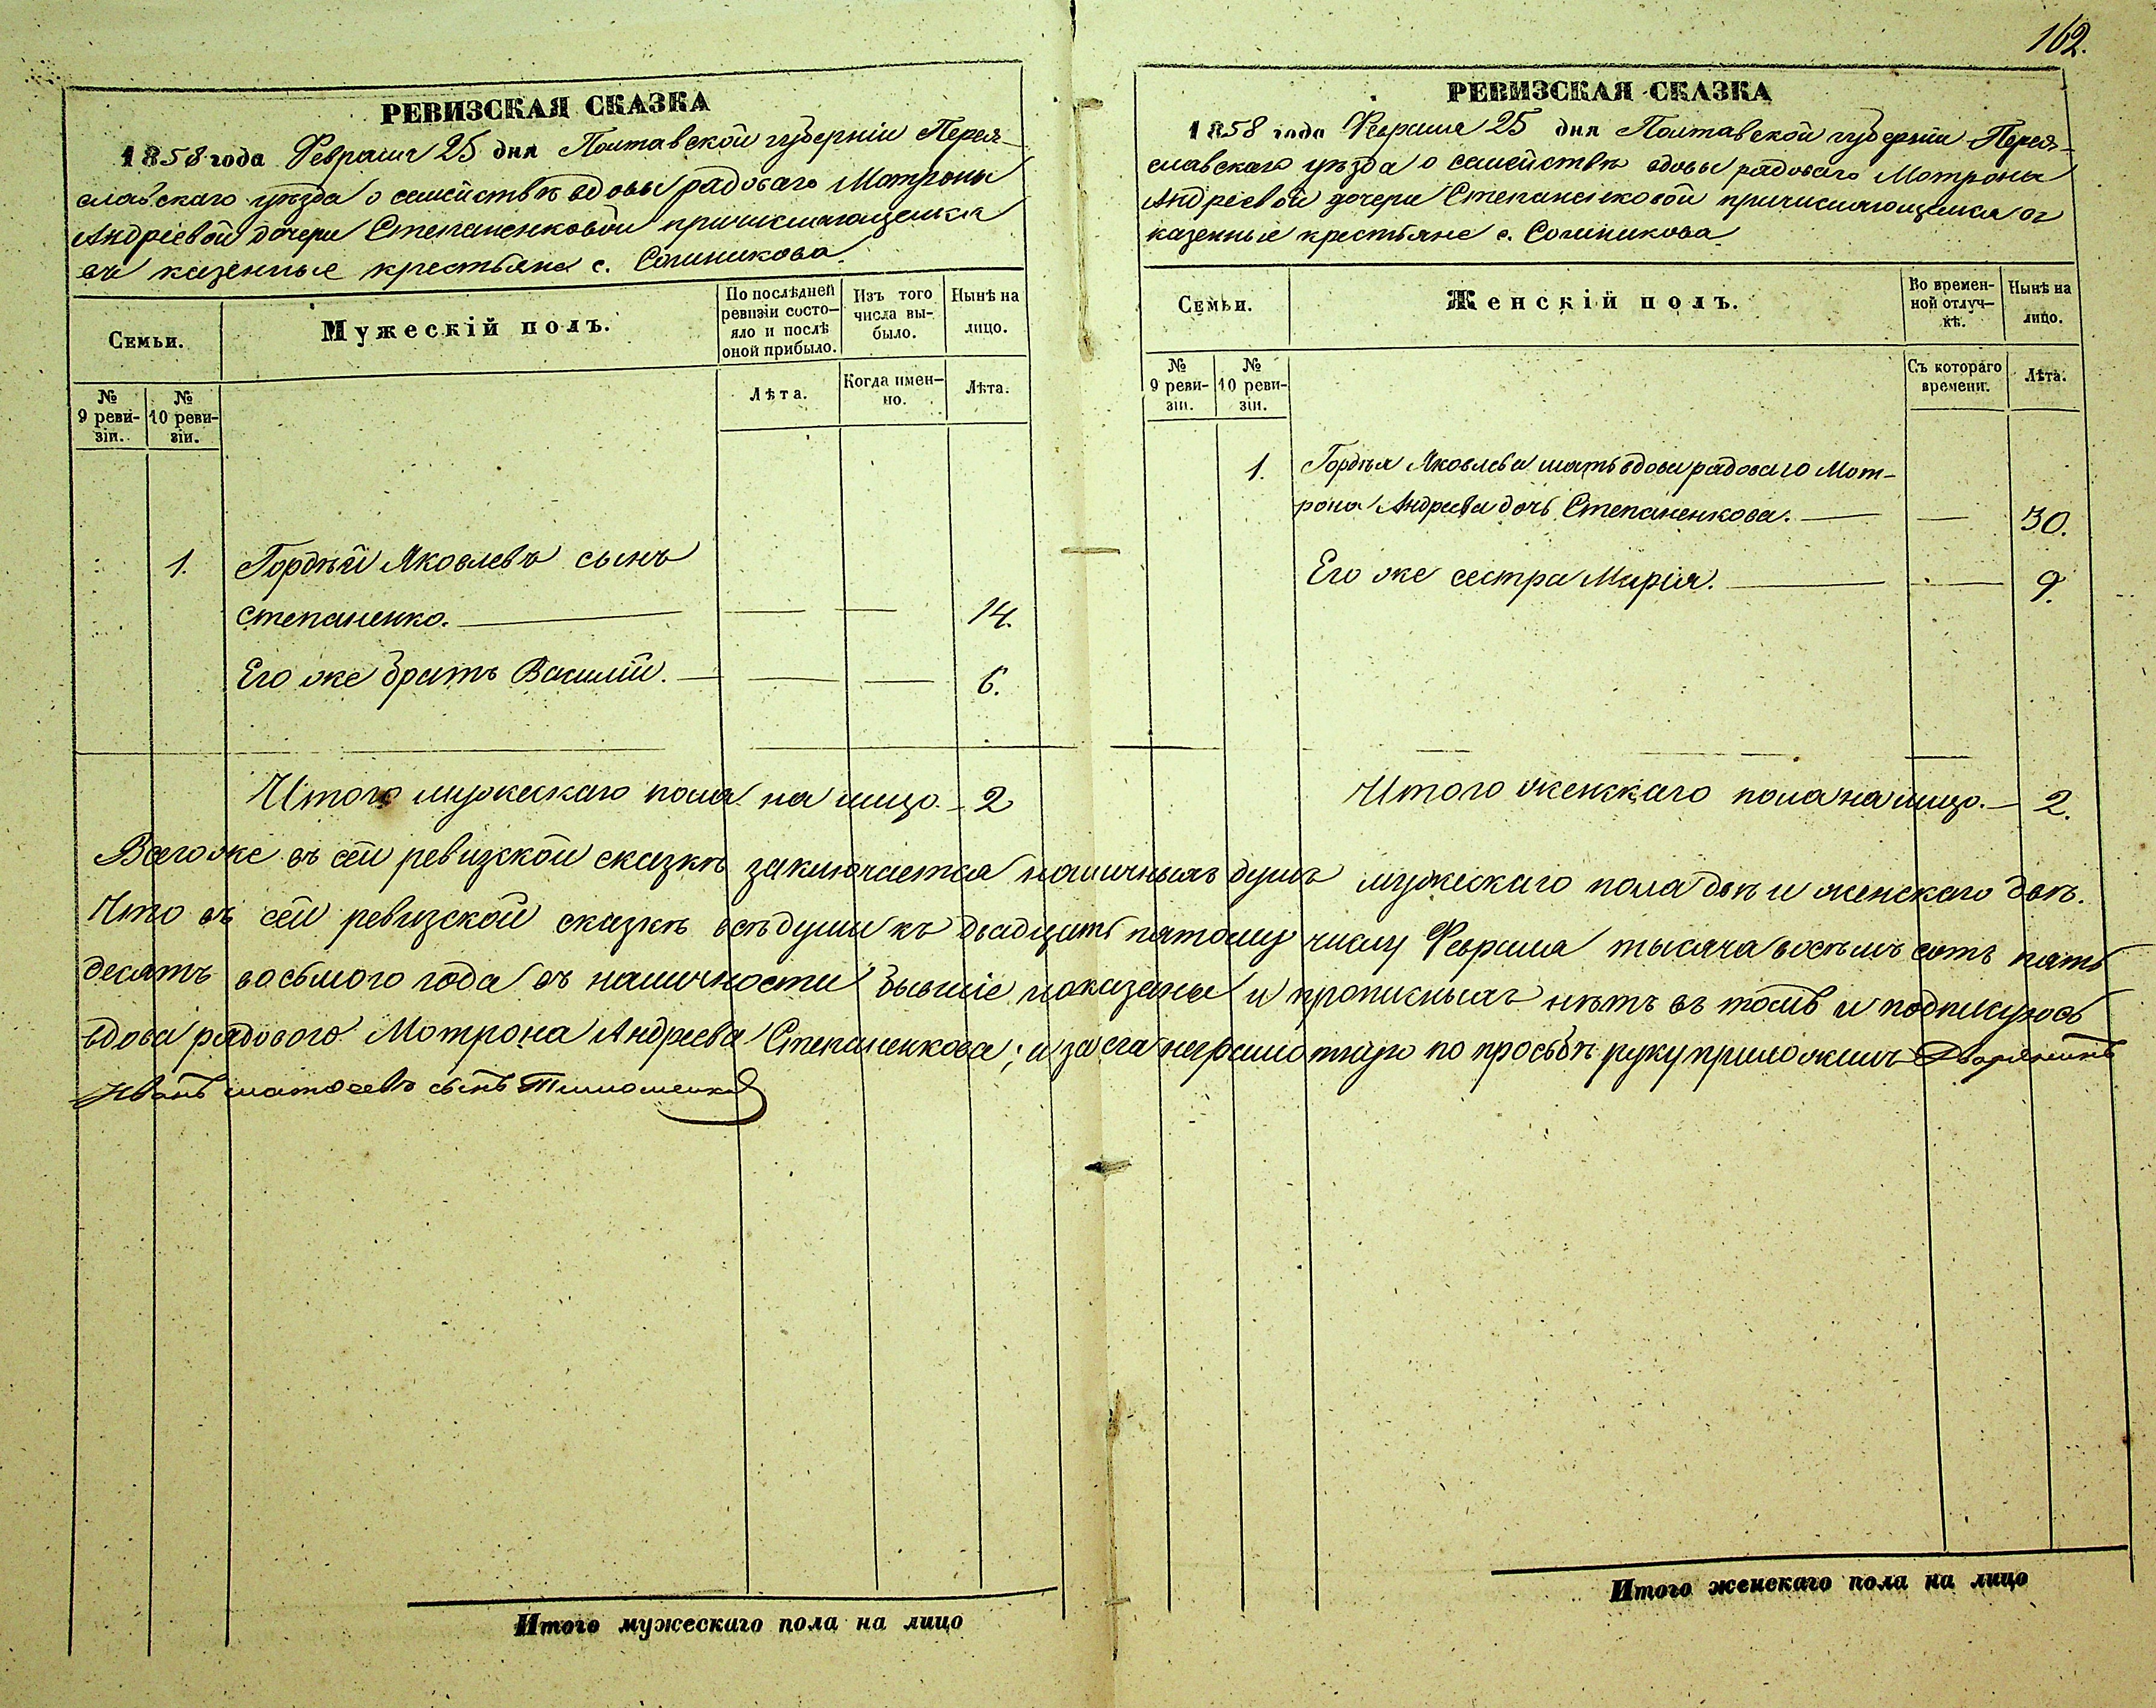 162.
РЕВИЗСКАЯ СКАЗКА
1858 года Февраля 25 дня Полтавской губерніи Перея-
славскаго уѣзда о семействѣ вдовы рядоваго Мотроны
Андріевой дочери Степаненковой причисляющемся
въ казенные крестьяне с. Сошникова.
Семьи.
Мужескій полъ.
По послѣдней
ревизіи состо-
яло и послѣ
оной прибыло.
Изъ того
числа вы-
было.
Нынѣ на
лицо.
№
9 реви-
зіи.
№
10 реви-
зіи.
Лѣта.
Когда имен-
но.
Лѣта.
1. Гордѣй Яковлевъ сынъ
Степаненко. 14.
Его же братъ Василій. 6.
Итого мужескаго пола на лицо 2
РЕВИЗСКАЯ СКАЗКА
1858 года Февраля 25 дня Полтавской губерніи Перея-
славскаго уѣзда о семействѣ вдовы рядоваго Мотроны
Андріевой дочери Степаненковой причисляющемся въ
казенные крестьяне с. Сошникова
Семьи.
Женскій полъ.
Во времен-
ной отлуч-
кѣ.
Нынѣ на
лицо.
№
9 реви-
зіи.
№
10 реви-
зіи.
Съ котораго
времени.
Лѣта.
1. Гордѣя Яковлева мать вдова рядоваго Мот-
рона Андреева дочь Степаненкова. 30.
Его же сестра Марія. 9.
Итого женскаго пола на лицо. 2.
Всего же въ сей ревизской сказкѣ заключается наличныхъ душъ мужескаго пола двѣ и женскаго двѣ.
Что въ сей ревизской сказкѣ всѣ души къ двадцать пятому числу Февраля тысяча восемь сотъ пять
десятъ восьмого года въ наличности бывшіе показаны и прописныхъ нѣтъ въ томъ и подписуюсь
вдова рядового Мотрона Андреева Степаненкова; а за ея неграмотную по просьбѣ руку приложилъ Дворянинъ
Иванъ матвеевъ сынъ Тимошенко
Итого мужескаго пола на лицо
Итого женскаго пола на лицо